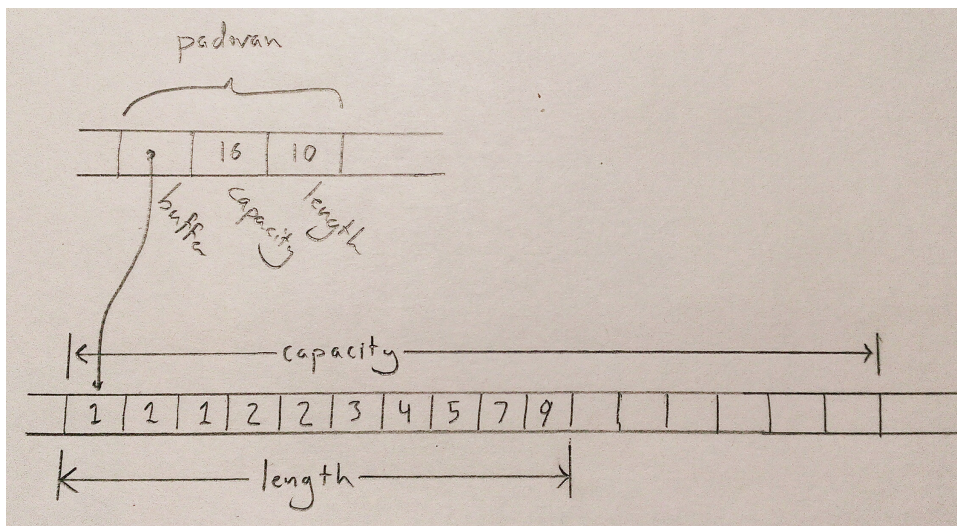 padovan
16 10
buffer capacity length
capacity
1 1 1 2 2 3 4 5 7 9
length